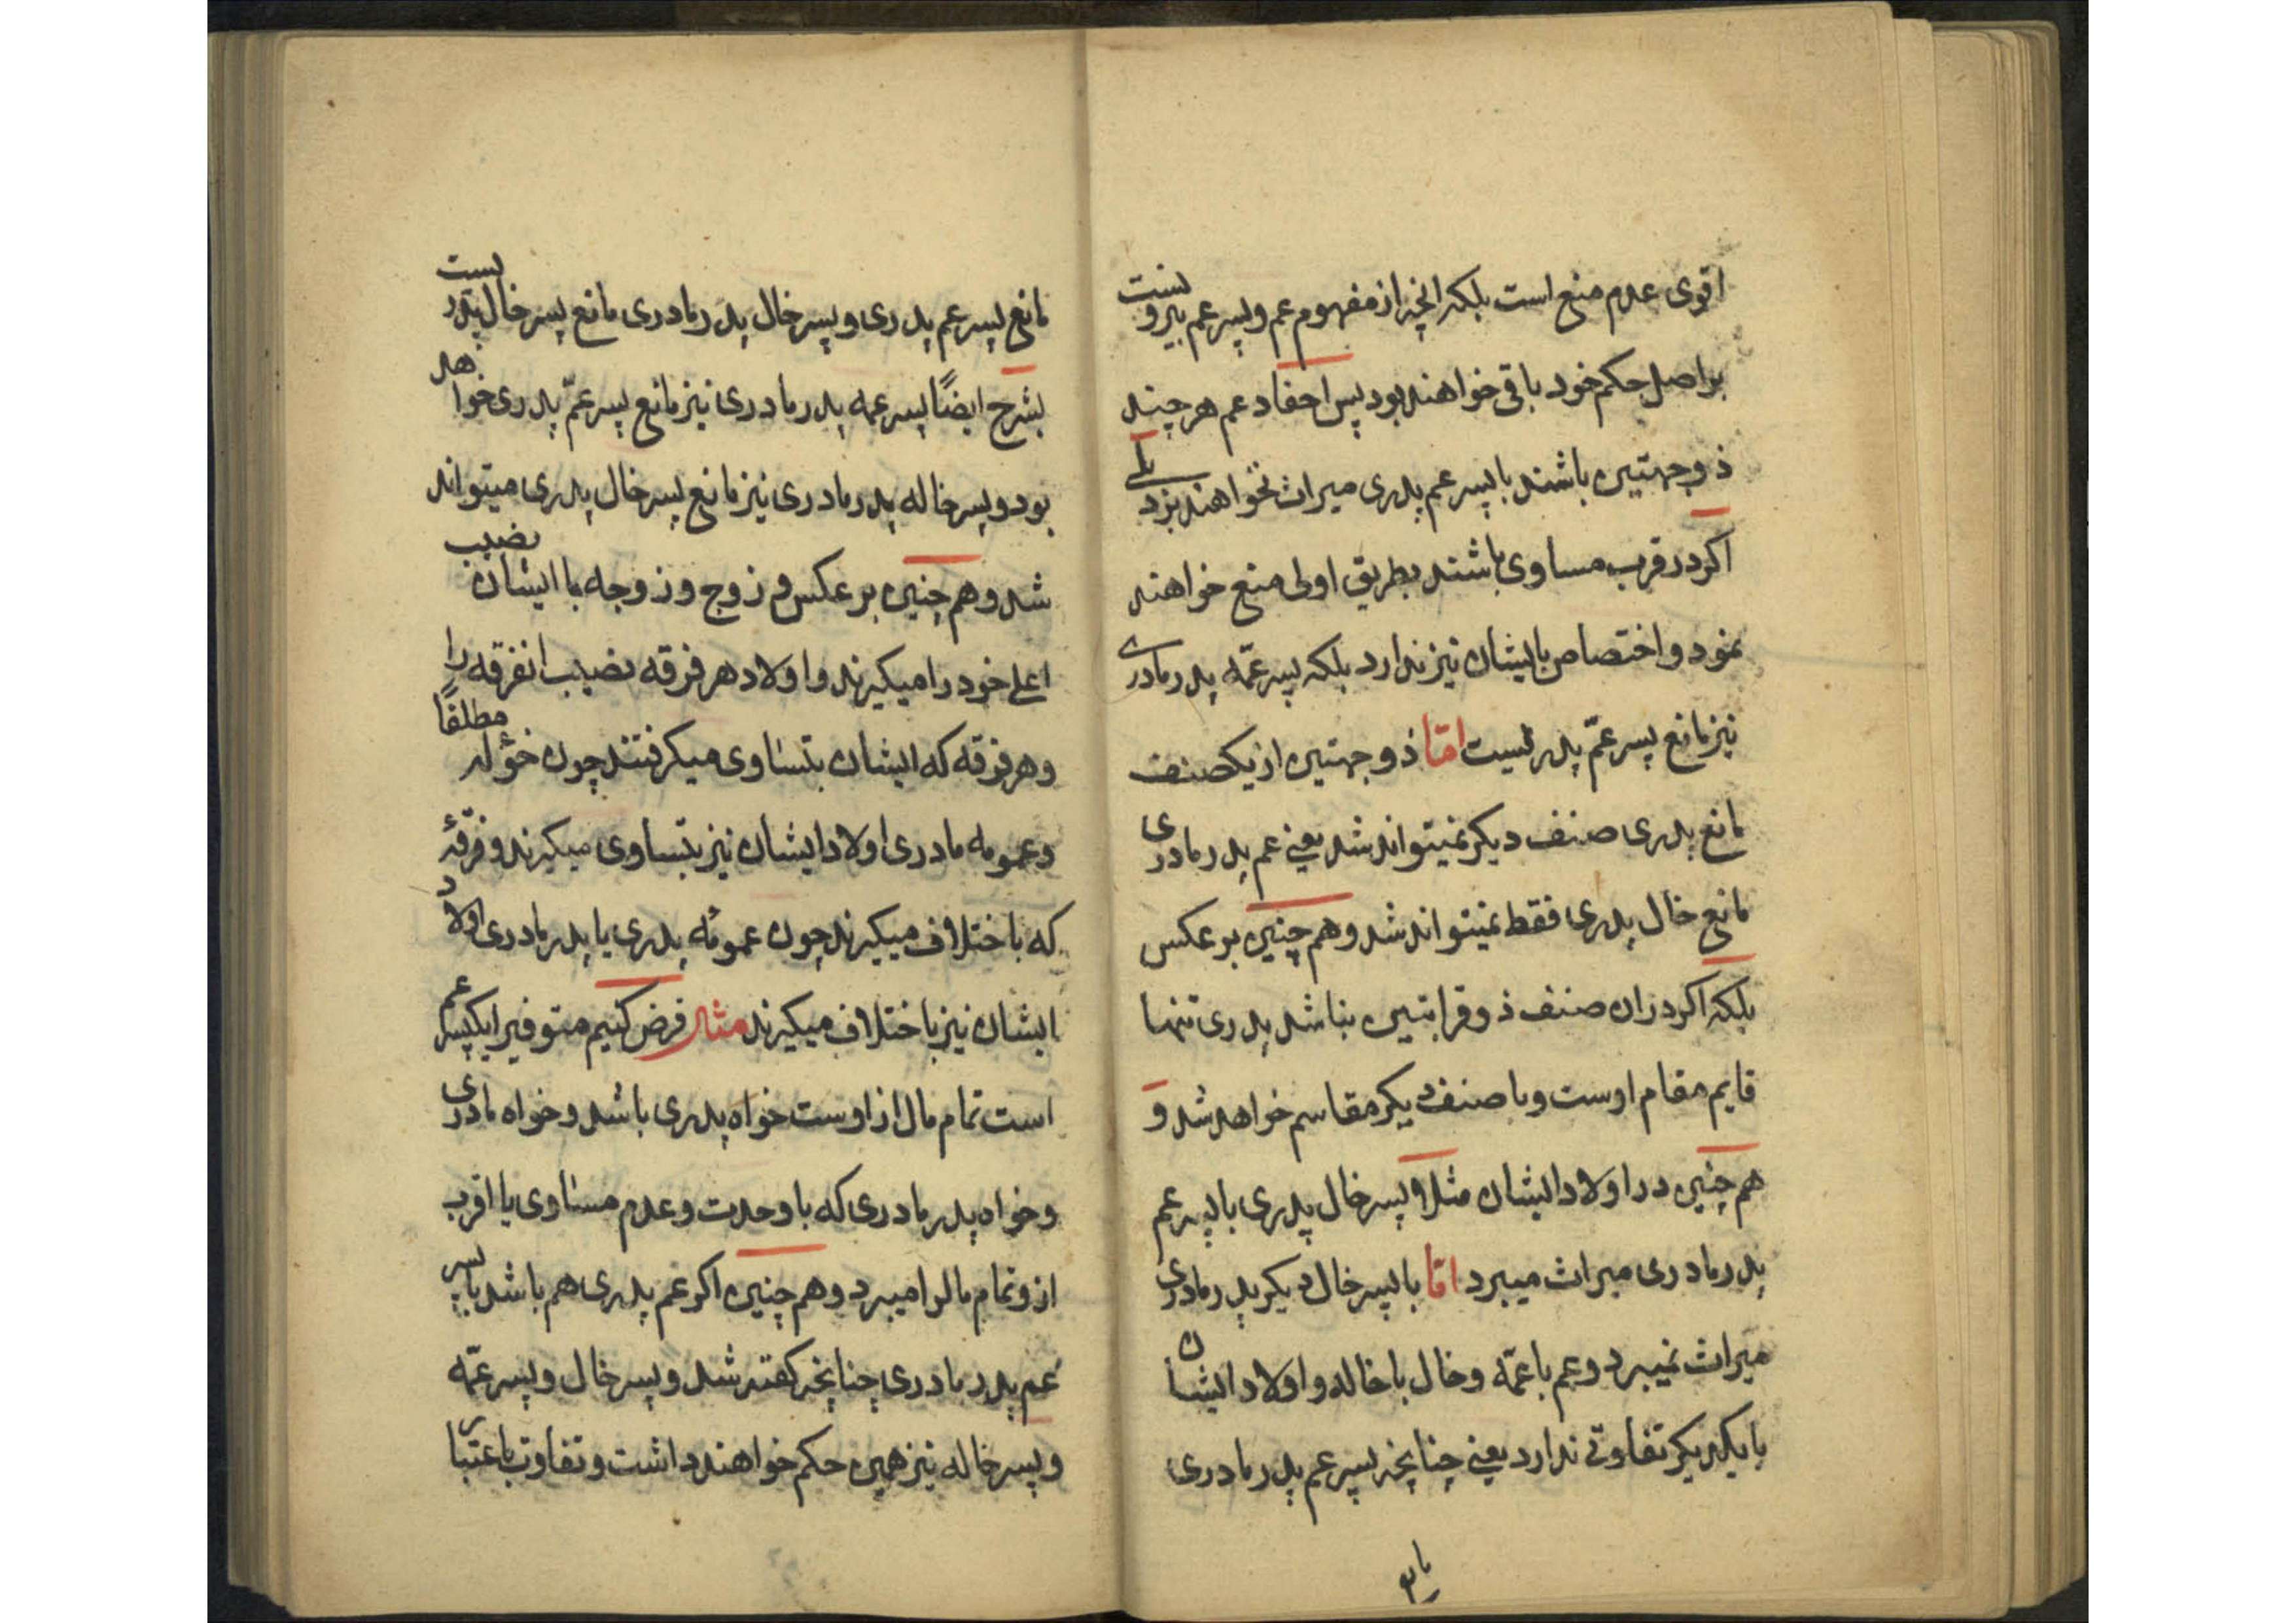 اقوی عدم منع است بلکه انچه از مفهوم عم و پسر عم بیرونست
بر اصل حکم خود باقی خواهند بود پس احفاد عم هر چند
ذو جهتین باشند با پسر عم پدری میراث نخواهند برد بلی
اکر در قرب مساوی باشند بطریق اولی منع خواهند
نمود و اختصاص بایشان نیز ندارد بلکه پسر عمّه پدر مادری
نیز مانع پسر عمّ پدر نیست امّا ذو جهتین از یکصنف
مانع پدری صنف دیکر نمیتواند شد یعنی عم پدر مادری
مانع خال پدری فقط نمیتواند شد و هم چنین بر عکس
بلکه اکر دران صنف ذو قرابتین نباشد پدری تنها
قایم مقام اوست و با صنف دیکر مقاسم خواهد شد و
هم چنین در اولاد ایشان مثلا پسر خال پدری با پسر عم
پدر مادری میراث میبرد امّا با پسر خال دیکر پدر مادری
میراث نمیبرد و عم با عمّه و خال با خاله و اولاد ایشان
با یکدیکر تفاوتی ندارد یعنی چنانچه پسر عم پدر مادری
مانع پسر عم پدری و پسر خال پدر مادری مانع پسر خال پدریست
بشرح ایضًا پسر عمه پدر مادری نیز مانع پسر عمّ پدری خواهد
بود و پسر خاله پدر مادری نیز مانع پسر خال پدری میتواند
شد و هم چنین بر عکس و زوج و زوجه با ایشان نصیب
اعلی خود را میکیرند و اولاد هر فرقه نصیب انفرقه را
و هر فرقه که ایشان بتساوی میکرفتند چون خؤله مطلقًا
و عمومه مادری اولاد ایشان نیز بتساوی میکیرند و فرقهٔ
که باختلاف میکیرند چون عمومه پدری یا پدر مادری اولاد
ایشان نیز باختلاف میکیرند مثال فرض کنیم متوفیرا یکپسر عم
است تمام مال از اوست خواه پدری باشد و خواه مادری
و خواه پدر مادری که با وحدت و عدم مساوی یا اقرب
ازو تمام مالرا میبرد و هم چنین اکر عم پدری هم باشد با پسر
عم پدر مادری چنانچه کفته شد و پسر خال و پسر عمّه
و پسر خاله نیز همین حکم خواهند داشت و تفاوت باعتبار